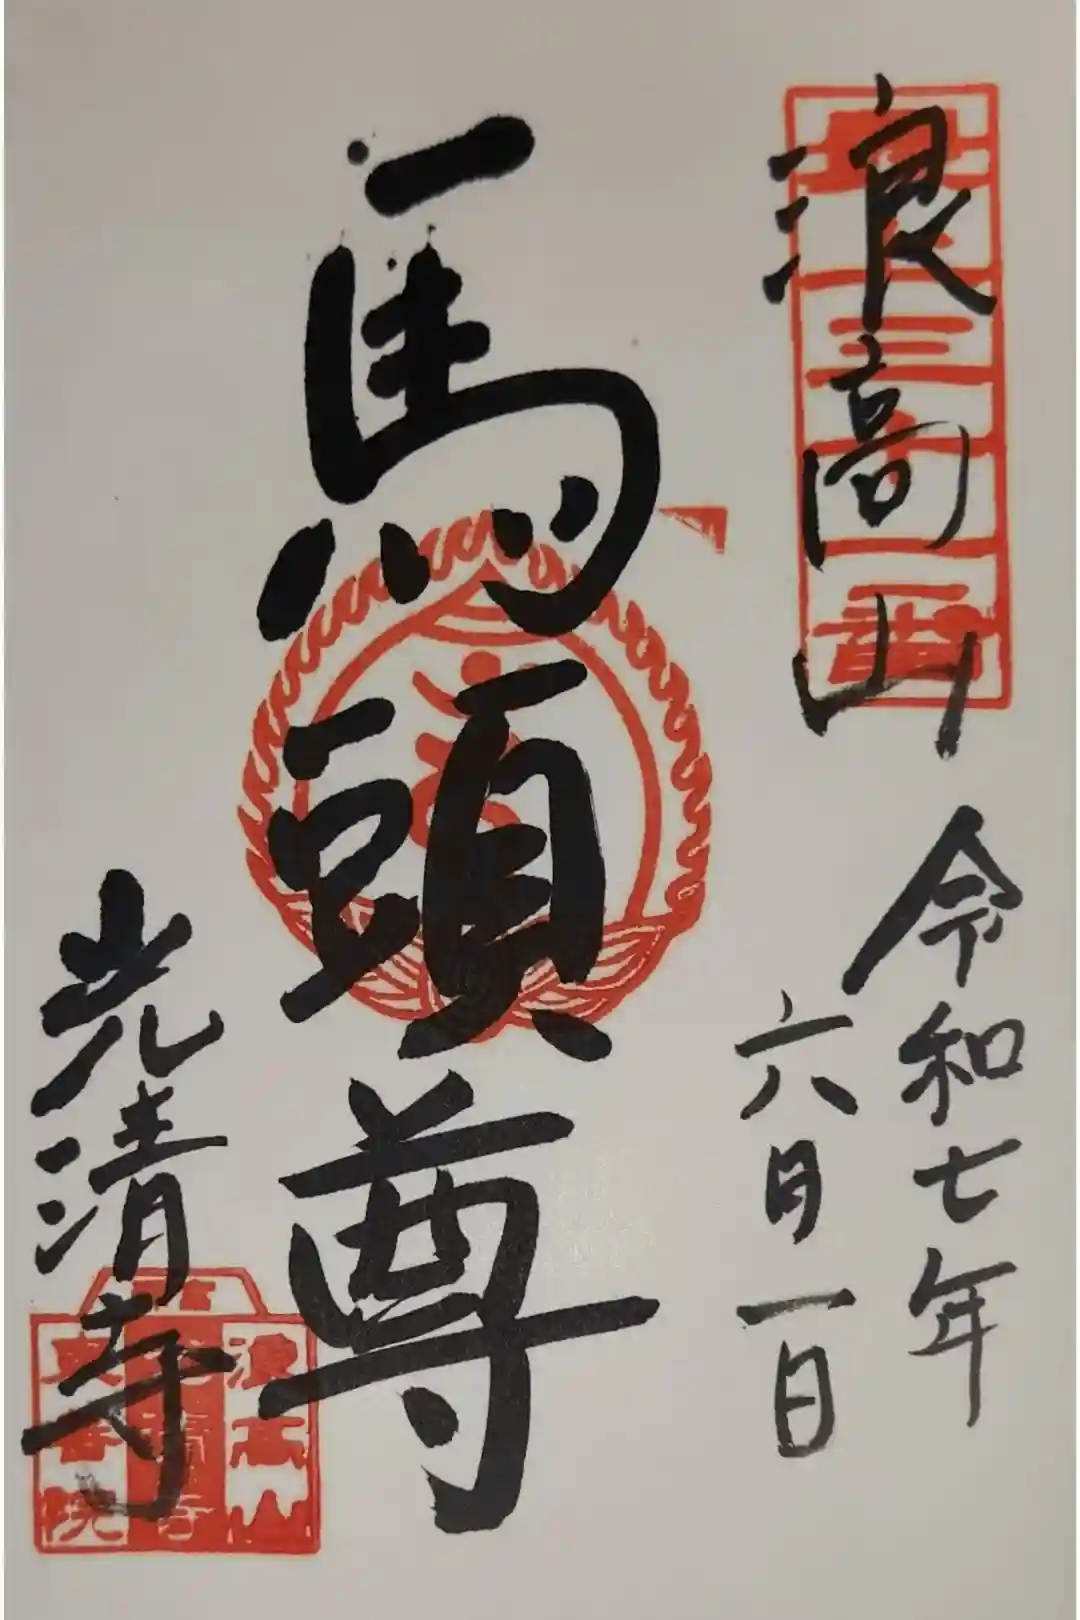 浪高山
令和七年
六月一日
馬頭尊
光清寺
浪高山
東春院